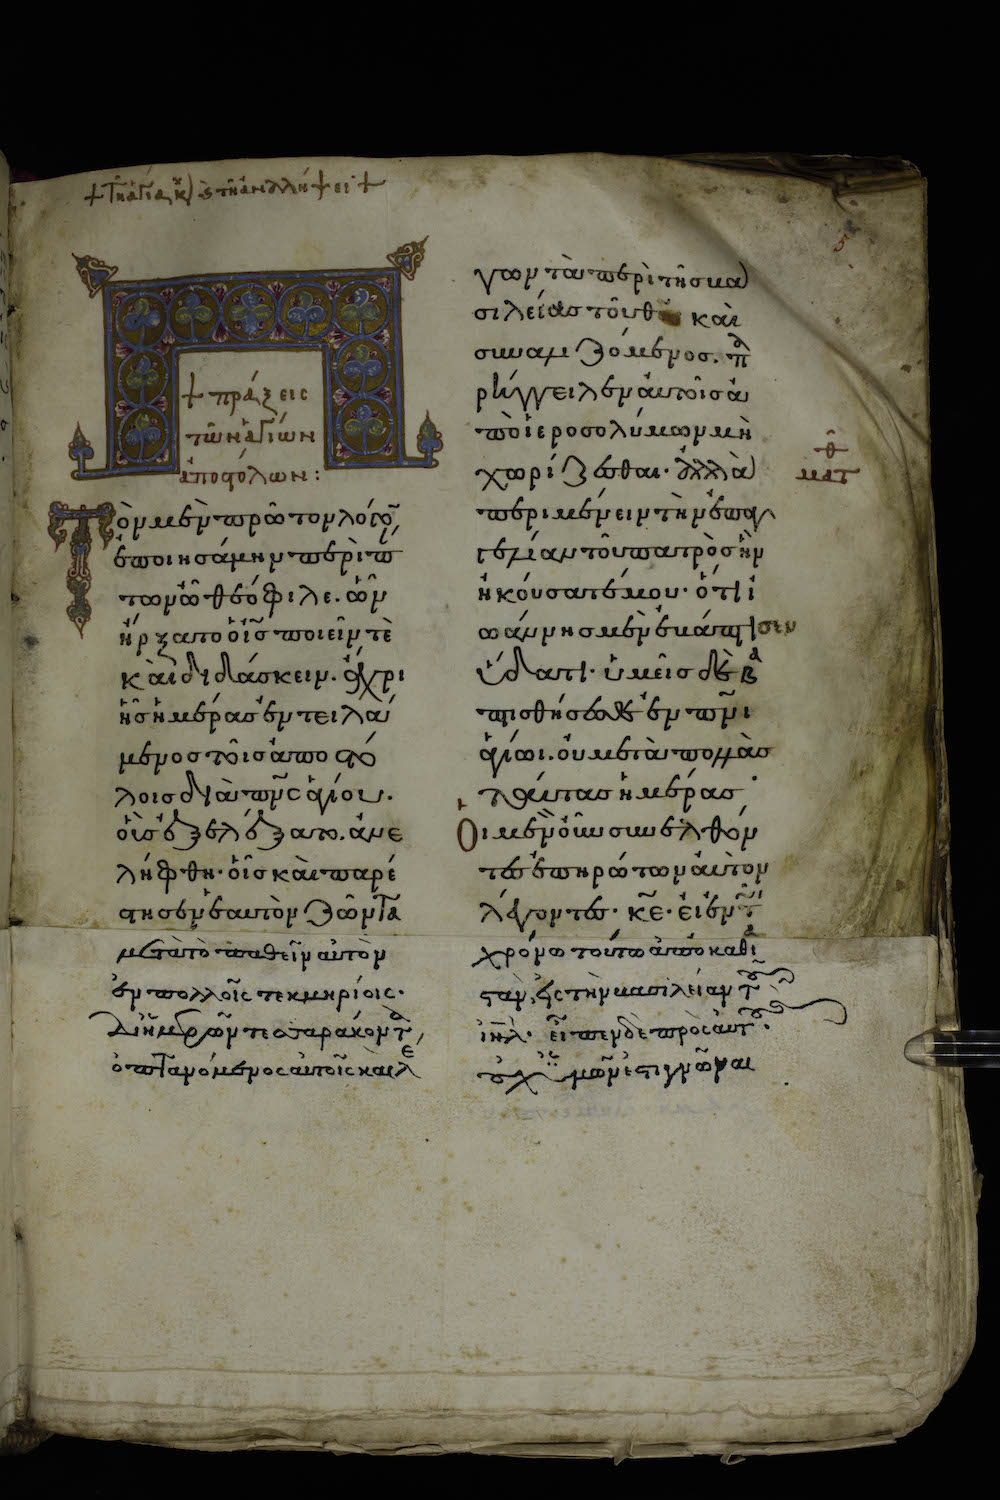 πράξεις
τῶν ἁγίων
ἀποστόλων:
Τὸν μὲν πρῶτον λόγον
ἐποιησάμην περὶ πάν
των ὦ θεόφιλε. ὧν
ἤρξατο ὁ ἰς ποιεῖν τὲ
καὶ διδάσκειν. ἄχρι
ἧς ἡμέρας ἐντειλά
μενος τοῖς ἀποστό
λοις διὰ πνς ἁγίου.
οὓς ἐξελέξατο. ἀνε
λήφθη. οἷς καὶ παρέ
στησεν ἑαυτὸν ζῶντα
μετὰ τὸ παθεῖν αὐτὸν
ἐν πολλοῖς τεκμηρίοις.
δι ἡμερῶν τεσσαράκοντα
ὀπτανόμενος αὐτοῖς καὶ λέ
γων τὰ περὶ τῆς βα
σιλείας τοῦ θυ καὶ
συναλιζόμενος. πα
ρήγγειλεν αὐτοῖς ἀ
πὸ ἱεροσολύμων μὴ
χωρίζεσθαι. ἀλλὰ
περιμένειν τὴν ἐπαγ
γελίαν τοῦ πατρὸς ἣν
ἠκούσατέ μου. ὅτι ἰ
ωάννης μὲν ἐβάπτισεν
ὕδατι. ὑμεῖς δὲ βα
πτισθήσεσθε ἐν πνι
ἁγίωι. οὐ μετὰ πολλὰς
ταύτας ἡμέρας
Οἱ μὲν οὖν συνελθόν
τες ἐπηρώτων αὐτὸν
λέγοντες. κε. εἰ ἐν τῶ
χρόνω τούτω ἀποκαθι
στάνεις τὴν βασιλείαν τοῦ
ιηλ. εἶπεν δὲ πρὸς αὐτούς.
οὐχ ὑμῶν ἐστι γνῶναι